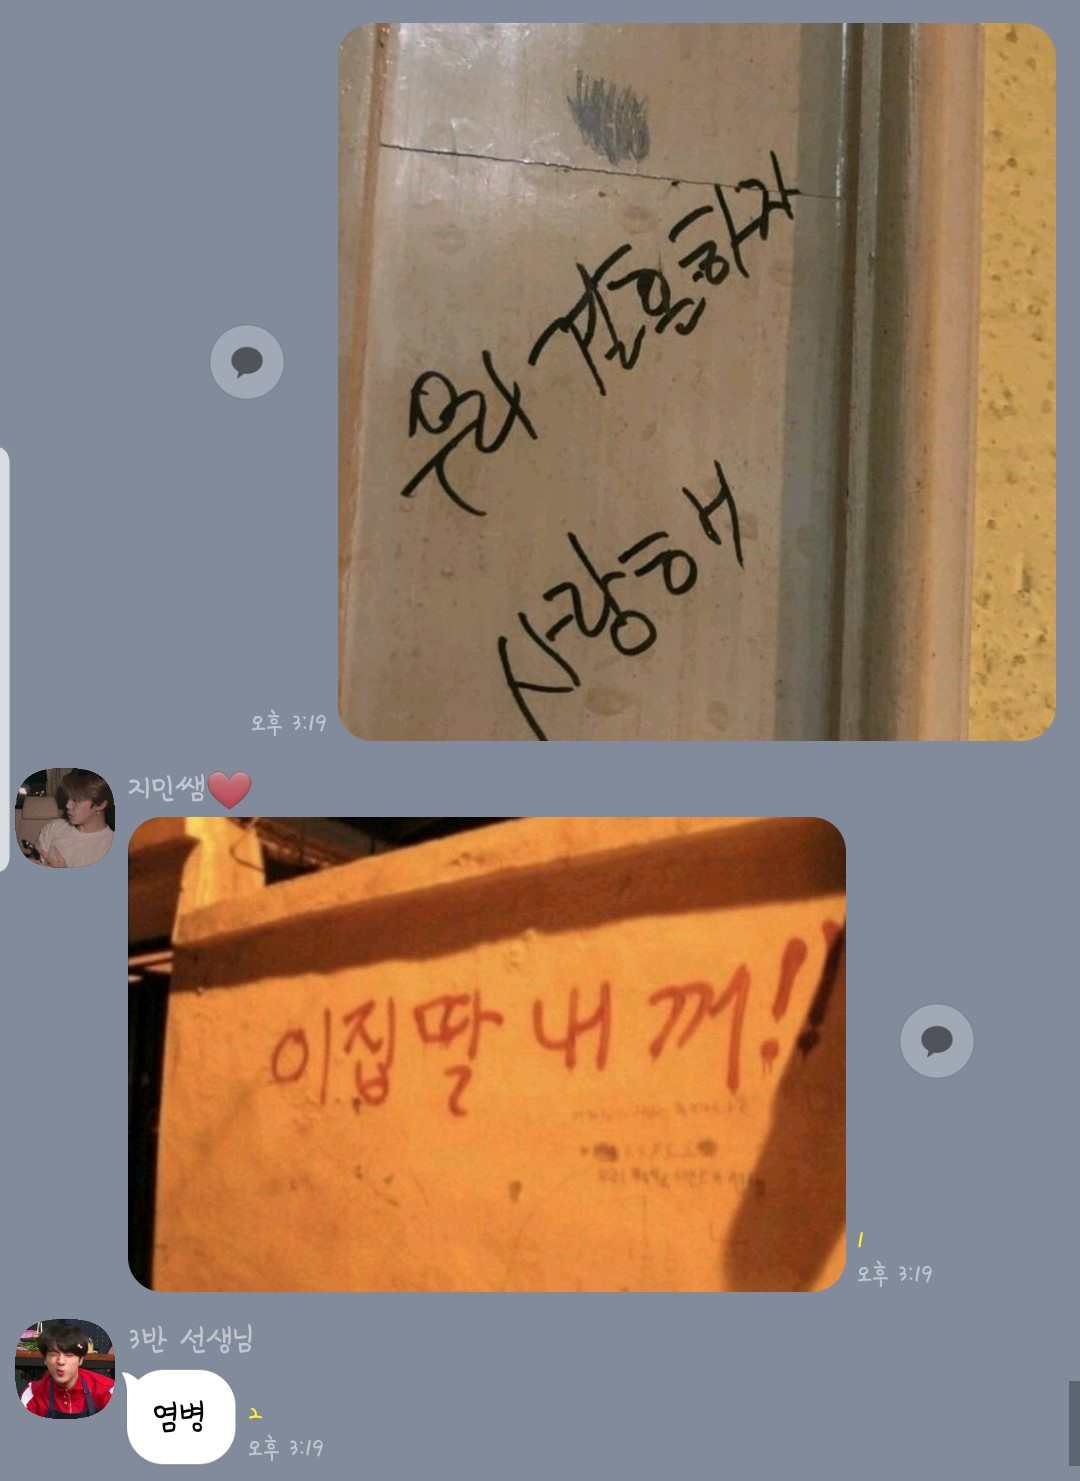 우리 결혼하자
사랑해
오후 3:19
지민쌤
이집 딸 내 꺼!!
1
오후 3:19
3반 선생님
염병
2
오후 3:19